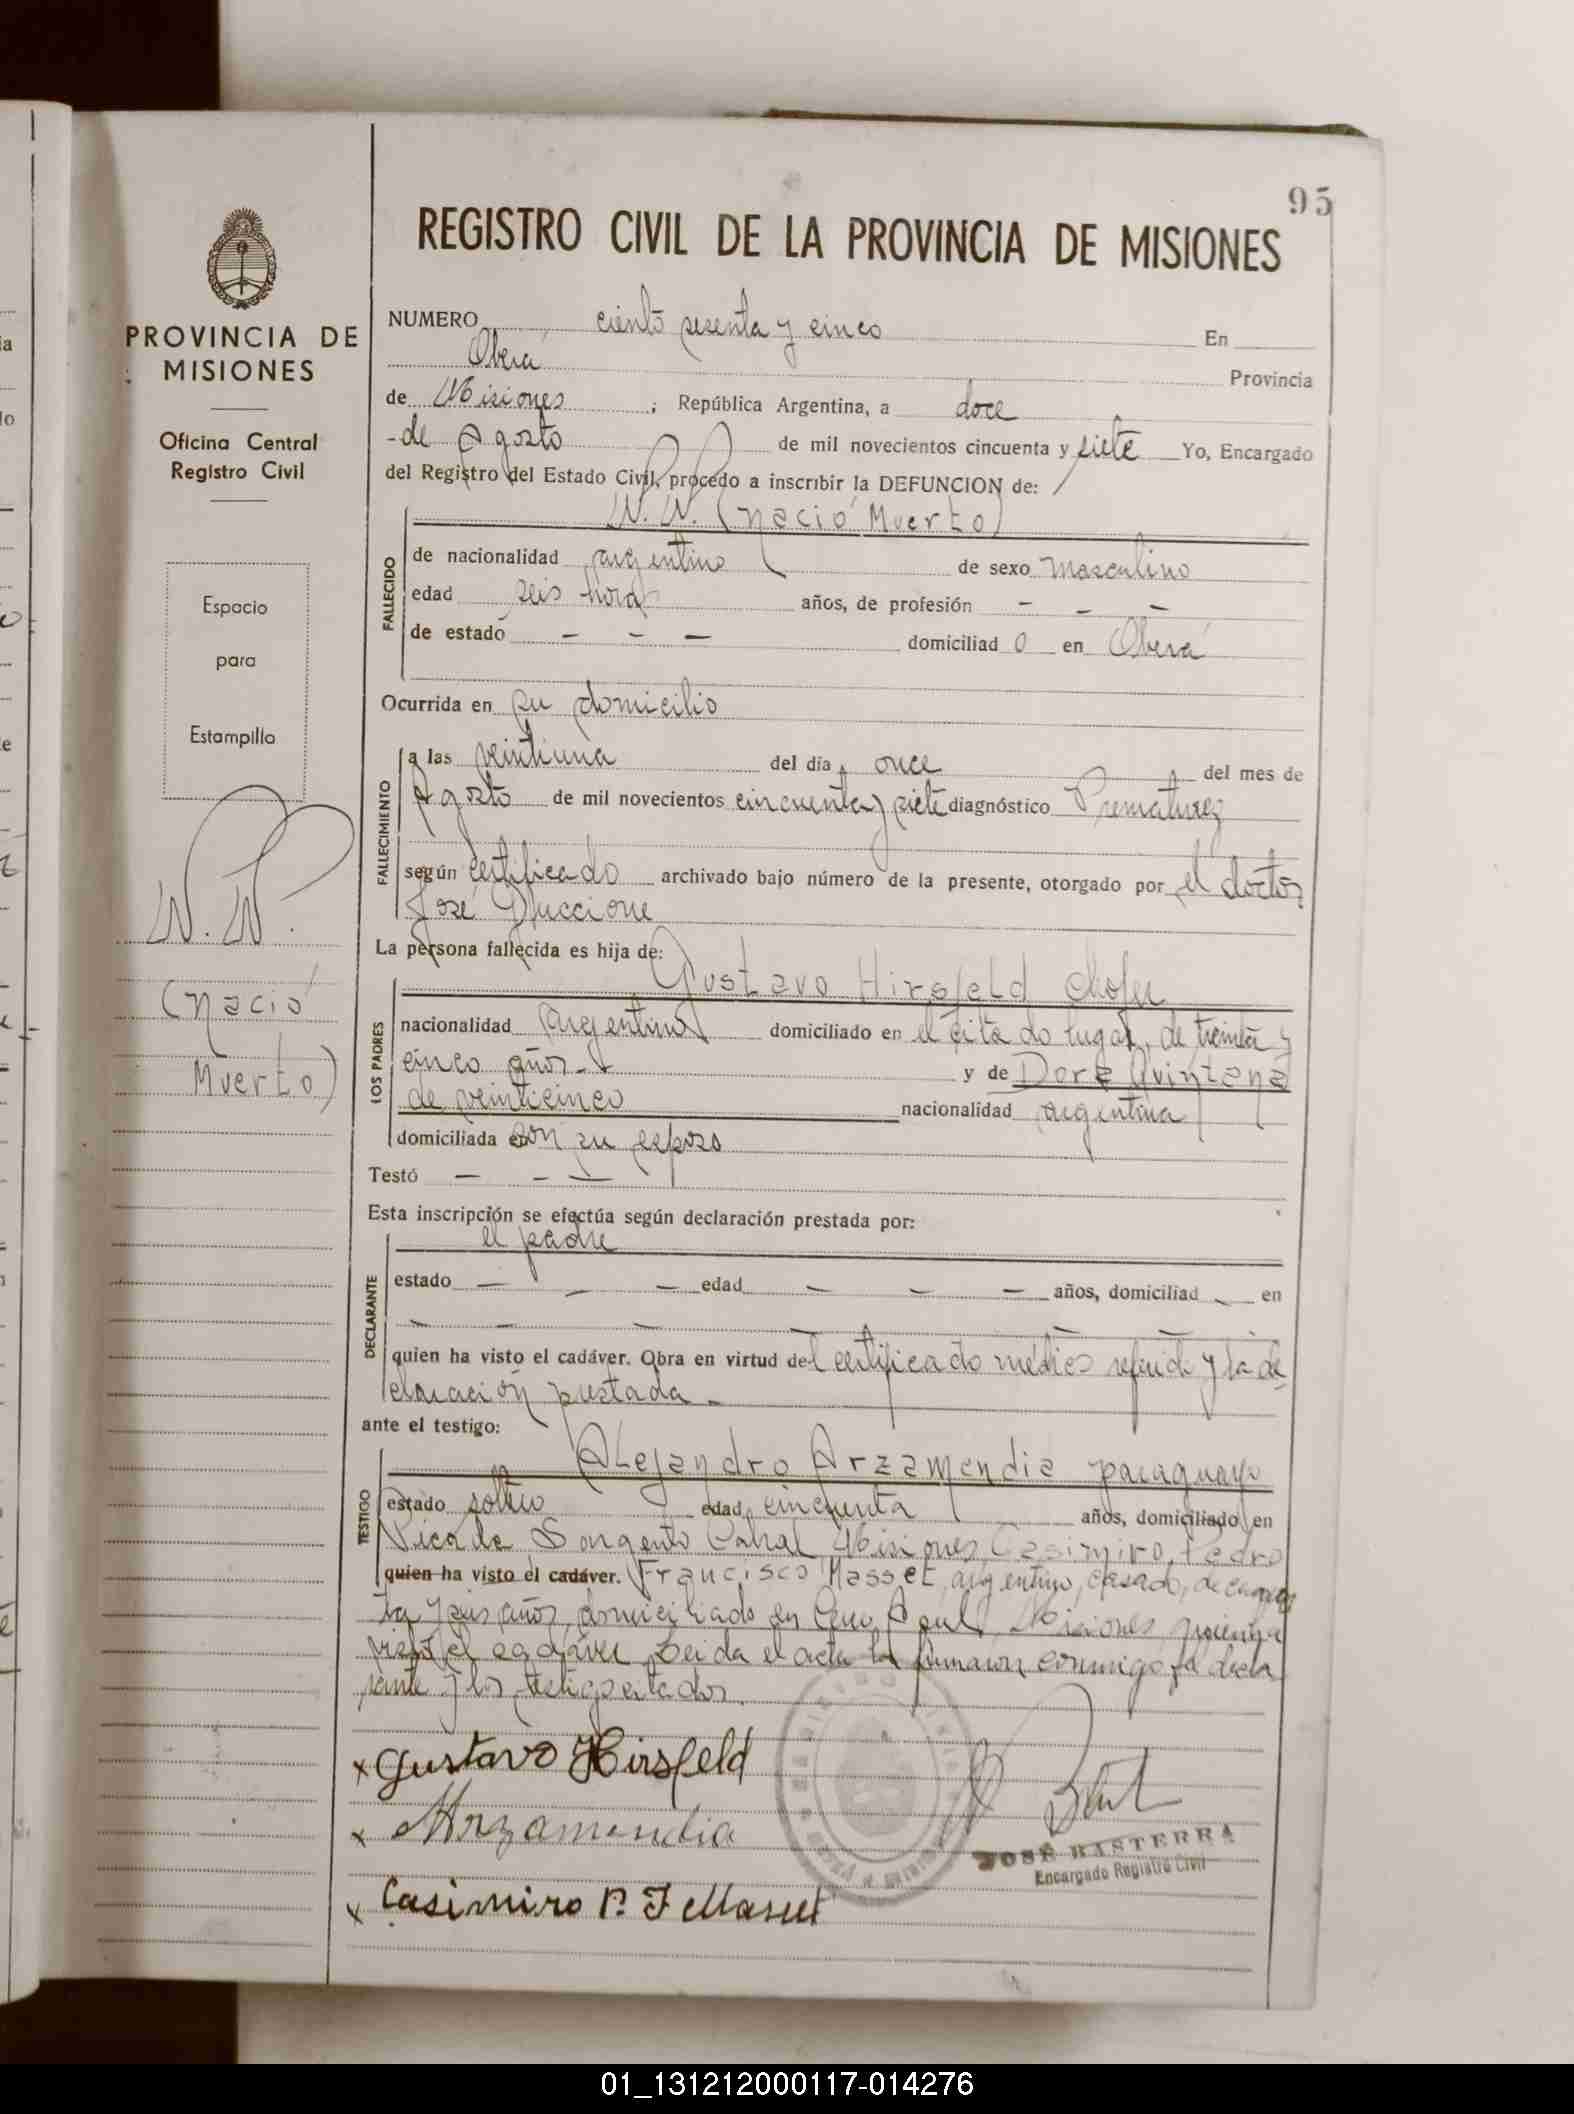 95
REGISTRO CIVIL DE LA PROVINCIA DE MISIONES
PROVINCIA DE
MISIONES
Oficina Central
Registro Civil
Espacio
para
Estampilla
N. N.
(nació
Muerto)
NUMERO ciento sesenta y cinco En
Oberá Provincia
de Misiones ; República Argentina, a doce
-de Agosto de mil novecientos cincuenta y siete Yo, Encargado
del Registro del Estado Civil, procedo a inscribir la DEFUNCION de:
N. N. (nació Muerto)
FALLECIDO
de nacionalidad argentino de sexo masculino
edad seis horas años, de profesión - - -
de estado - - - domiciliad o en Oberá
Ocurrida en su domicilio
FALLECIMIENTO
a las veintiuna del día once del mes de
Agosto de mil novecientos cincuenta y siete diagnóstico Prematurez
según certificado archivado bajo número de la presente, otorgado por el doctor
José Guccione
La persona fallecida es hija de:
LOS PADRES
Gustavo Hirsfeld chofer
nacionalidad argentino domiciliado en el citado lugar, de treinta y
cinco años- y de Dora Quintana
de veinticinco nacionalidad argentina
domiciliada en con su esposo
Testó - - -
Esta inscripción se efectúa según declaración prestada por:
DECLARANTE
el padre
estado - - - edad - - - años, domiciliad - en
- - - - - -
quien ha visto el cadáver. Obra en virtud del certificado médico referido y la de
claración prestada -
ante el testigo:
TESTIGO
Alejandro Arzamendia paraguayo
estado soltero edad cincuenta años, domiciliado en
Picada Sargento Cabral Misiones, Casimiro Pedro
quien ha visto el cadáver. Francisco Masset, argentino, casado, de cuaren
ta y seis años, domiciliado en Misiones quien ha
visto el cadáver. Leida el acta la firmaron conmigo, el decla
rante y los testigos citados.
x Gustavo Hirsfeld
x Arzamendia
x Casimiro P. F Masset
JOSÉ BASTERRA
Encargado Registro Civil
01_131212000117-014276